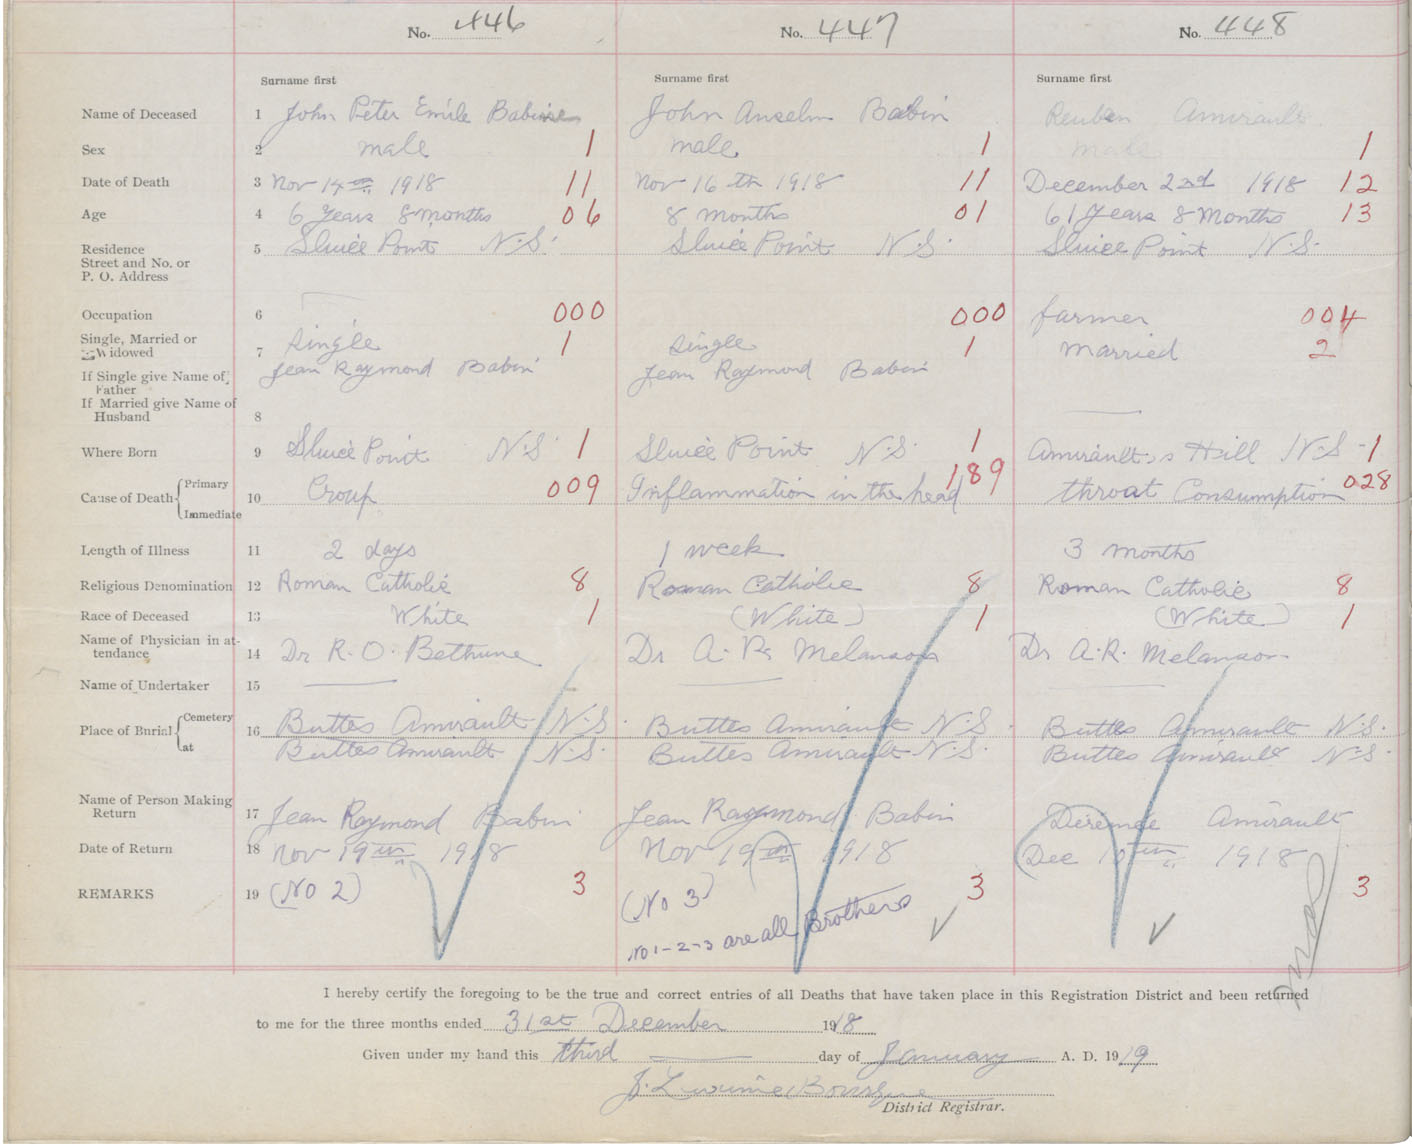 No. 446 No. 447 No. 448
Surname first Surname first Surname first
Name of Deceased 1 John Peter Emile Babin John Anselm Babin Reuben Amirault
Sex 2 male 1 male 1 male 1
Date of Death 3 Nov 14th 1918 11 Nov 16th 1918 11 December 2nd 1918 12
Age 4 6 Years 8 months 06 8 months 01 61 Years 8 Months 13
Residence 5 Sluice Point N.S. Sluice Point N.S. Sluice Point N.S.
Street and No. or
P. O. Address
Occupation 6 000 000 farmer 004
Single, Married or
Widowed 7 Single 1 Single 1 Married 2
If Single give Name of Jean Raymond Babin Jean Raymond Babin
Father
If Married give Name of
Husband 8
Where Born 9 Sluice Point N.S. 1 Sluice Point N.S. 1 Amirault,s Hill N.S - 1
Cause of Death { Primary
10 Croup 009 Inflammation in the head 189 throat Consumption 028
Immediate
Length of Illness 11 2 days 1 week 3 months
Religious Denomination 12 Roman Catholic 8 Roman Catholic 8 Roman Catholic 8
Race of Deceased 13 White 1 (White) 1 (White) 1
Name of Physician in at-
tendance 14 Dr R. O. Bethune Dr A. R. Melanson Dr A. R. Melanson
Name of Undertaker 15
Place of Burial { Cemetery 16 Buttes Amirault N.S. Buttes Amirault N.S. Buttes Amirault N.S.
at Buttes Amirault N.S. Buttes Amirault N.S. Buttes Amirault N.S.
Name of Person Making
Return 17 Jean Raymond Babin Jean Raymond Babin Amirault
Date of Return 18 Nov 19th 1918 Nov 19th 1918 Dec 1918
REMARKS 19 (No 2) 3 (No 3) 3 3
No 1-2-3 are all Brothers
I hereby certify the foregoing to be the true and correct entries of all Deaths that have taken place in this Registration District and been returned
to me for the three months ended 31st December 1918
Given under my hand this third day of January A. D. 1919
District Registrar.